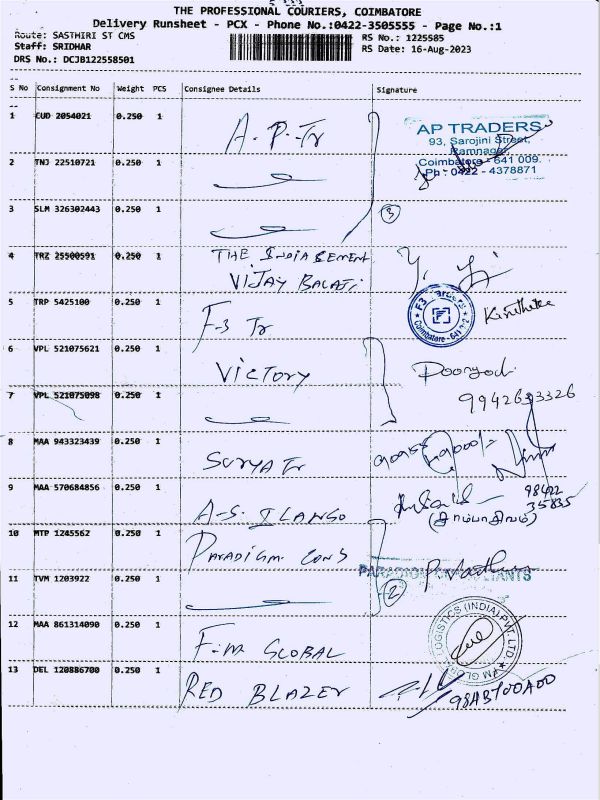 THE PROFESSIONAL COURIERS, COIMBATORE
Delivery Runsheet - PCX - Phone No.:0422-3505555 - Page No.:1
Route: SASTHIRI ST CMS RS No.: 1225585
Staff: SRIDHAR RS Date: 16-Aug-2023
DRS No.: DCJB122558501
S No Consignment No Weight PCS Consignee Details Signature
1 CUD 2054021 0.250 1 A.P.Tr
AP TRADERS
93, Sarojini Street,
Ramnagar,
Coimbatore - 641 009.
Ph : 0422 - 4378871
2 TNJ 22510721 0.250 1
3 SLM 326302443 0.250 1 3
4 TRZ 25500591 0.250 1 THE INDIA CEMENT
VIJAY BALAJI
5 TRP 5425100 0.250 1 F-3 Tr
Coimbatore - 641
6 VPL 521075621 0.250 1 VICTORY
7 VPL 521075098 0.250 1
8 MAA 943323439 0.250 1 SURYA Tr
9 MAA 570684856 0.250 1 A-S. ILANGO
98422
35835
10 MTP 1245562 0.250 1 PARADIGM CONS
11 TVM 1203922 0.250 1 2
12 MAA 861314090 0.250 1 F.M GLOBAL
FM GLOBAL LOGISTICS (INDIA) PVT. LTD.
13 DEL 120886700 0.250 1 RED BLAZER